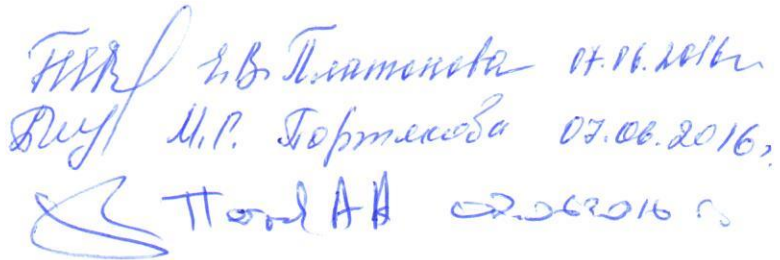 Е.В. Платонова 07.06.2016г.
М.Г. Портякова 07.06.2016г.
А А 07.06.2016 г.